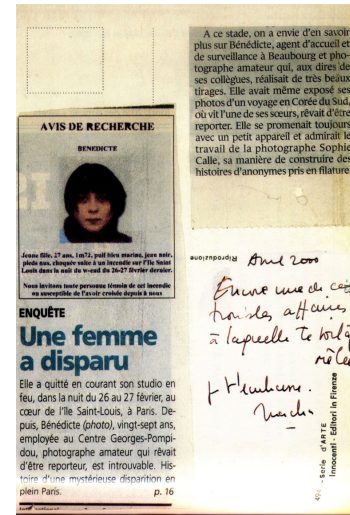 AVIS DE RECHERCHE
BENEDICTE
Jeune fille, 27 ans, 1m72, pull bleu marine, jean noir,
pieds nus, choquée suite à un incendie sur l'Ile Saint
Louis dans la nuit du w-end du 26-27 février dernier.
Nous invitons toute personne témoin de cet incendie
ou susceptible de l'avoir croisée depuis à nous
ENQUÊTE
Une femme
a disparu
Elle a quitté en courant son studio en
feu, dans la nuit du 26 au 27 février, au
cœur de l'île Saint-Louis, à Paris. De-
puis, Bénédicte (photo), vingt-sept ans,
employée au Centre Georges-Pompi-
dou, photographe amateur qui rêvait
d'être reporter, est introuvable. His-
toire d'une mystérieuse disparition en
plein Paris. p. 16
A ce stade, on a envie d'en savoir
plus sur Bénédicte, agent d'accueil et
de surveillance à Beaubourg et pho-
tographe amateur qui, aux dires de
ses collègues, réalisait de très beaux
tirages. Elle avait même exposé ses
photos d'un voyage en Corée du Sud,
où vit l'une de ses sœurs, rêvait d'être
reporter. Elle se promenait toujours
avec un petit appareil et admirait le
travail de la photographe Sophie
Calle, sa manière de construire des
histoires d'anonymes pris en filature.
Riproduzione
2000
Encore une de ces
affaires
à laquelle te voilà
mêlée
- Serie d'ARTE
Innocenti - Editori in Firenze